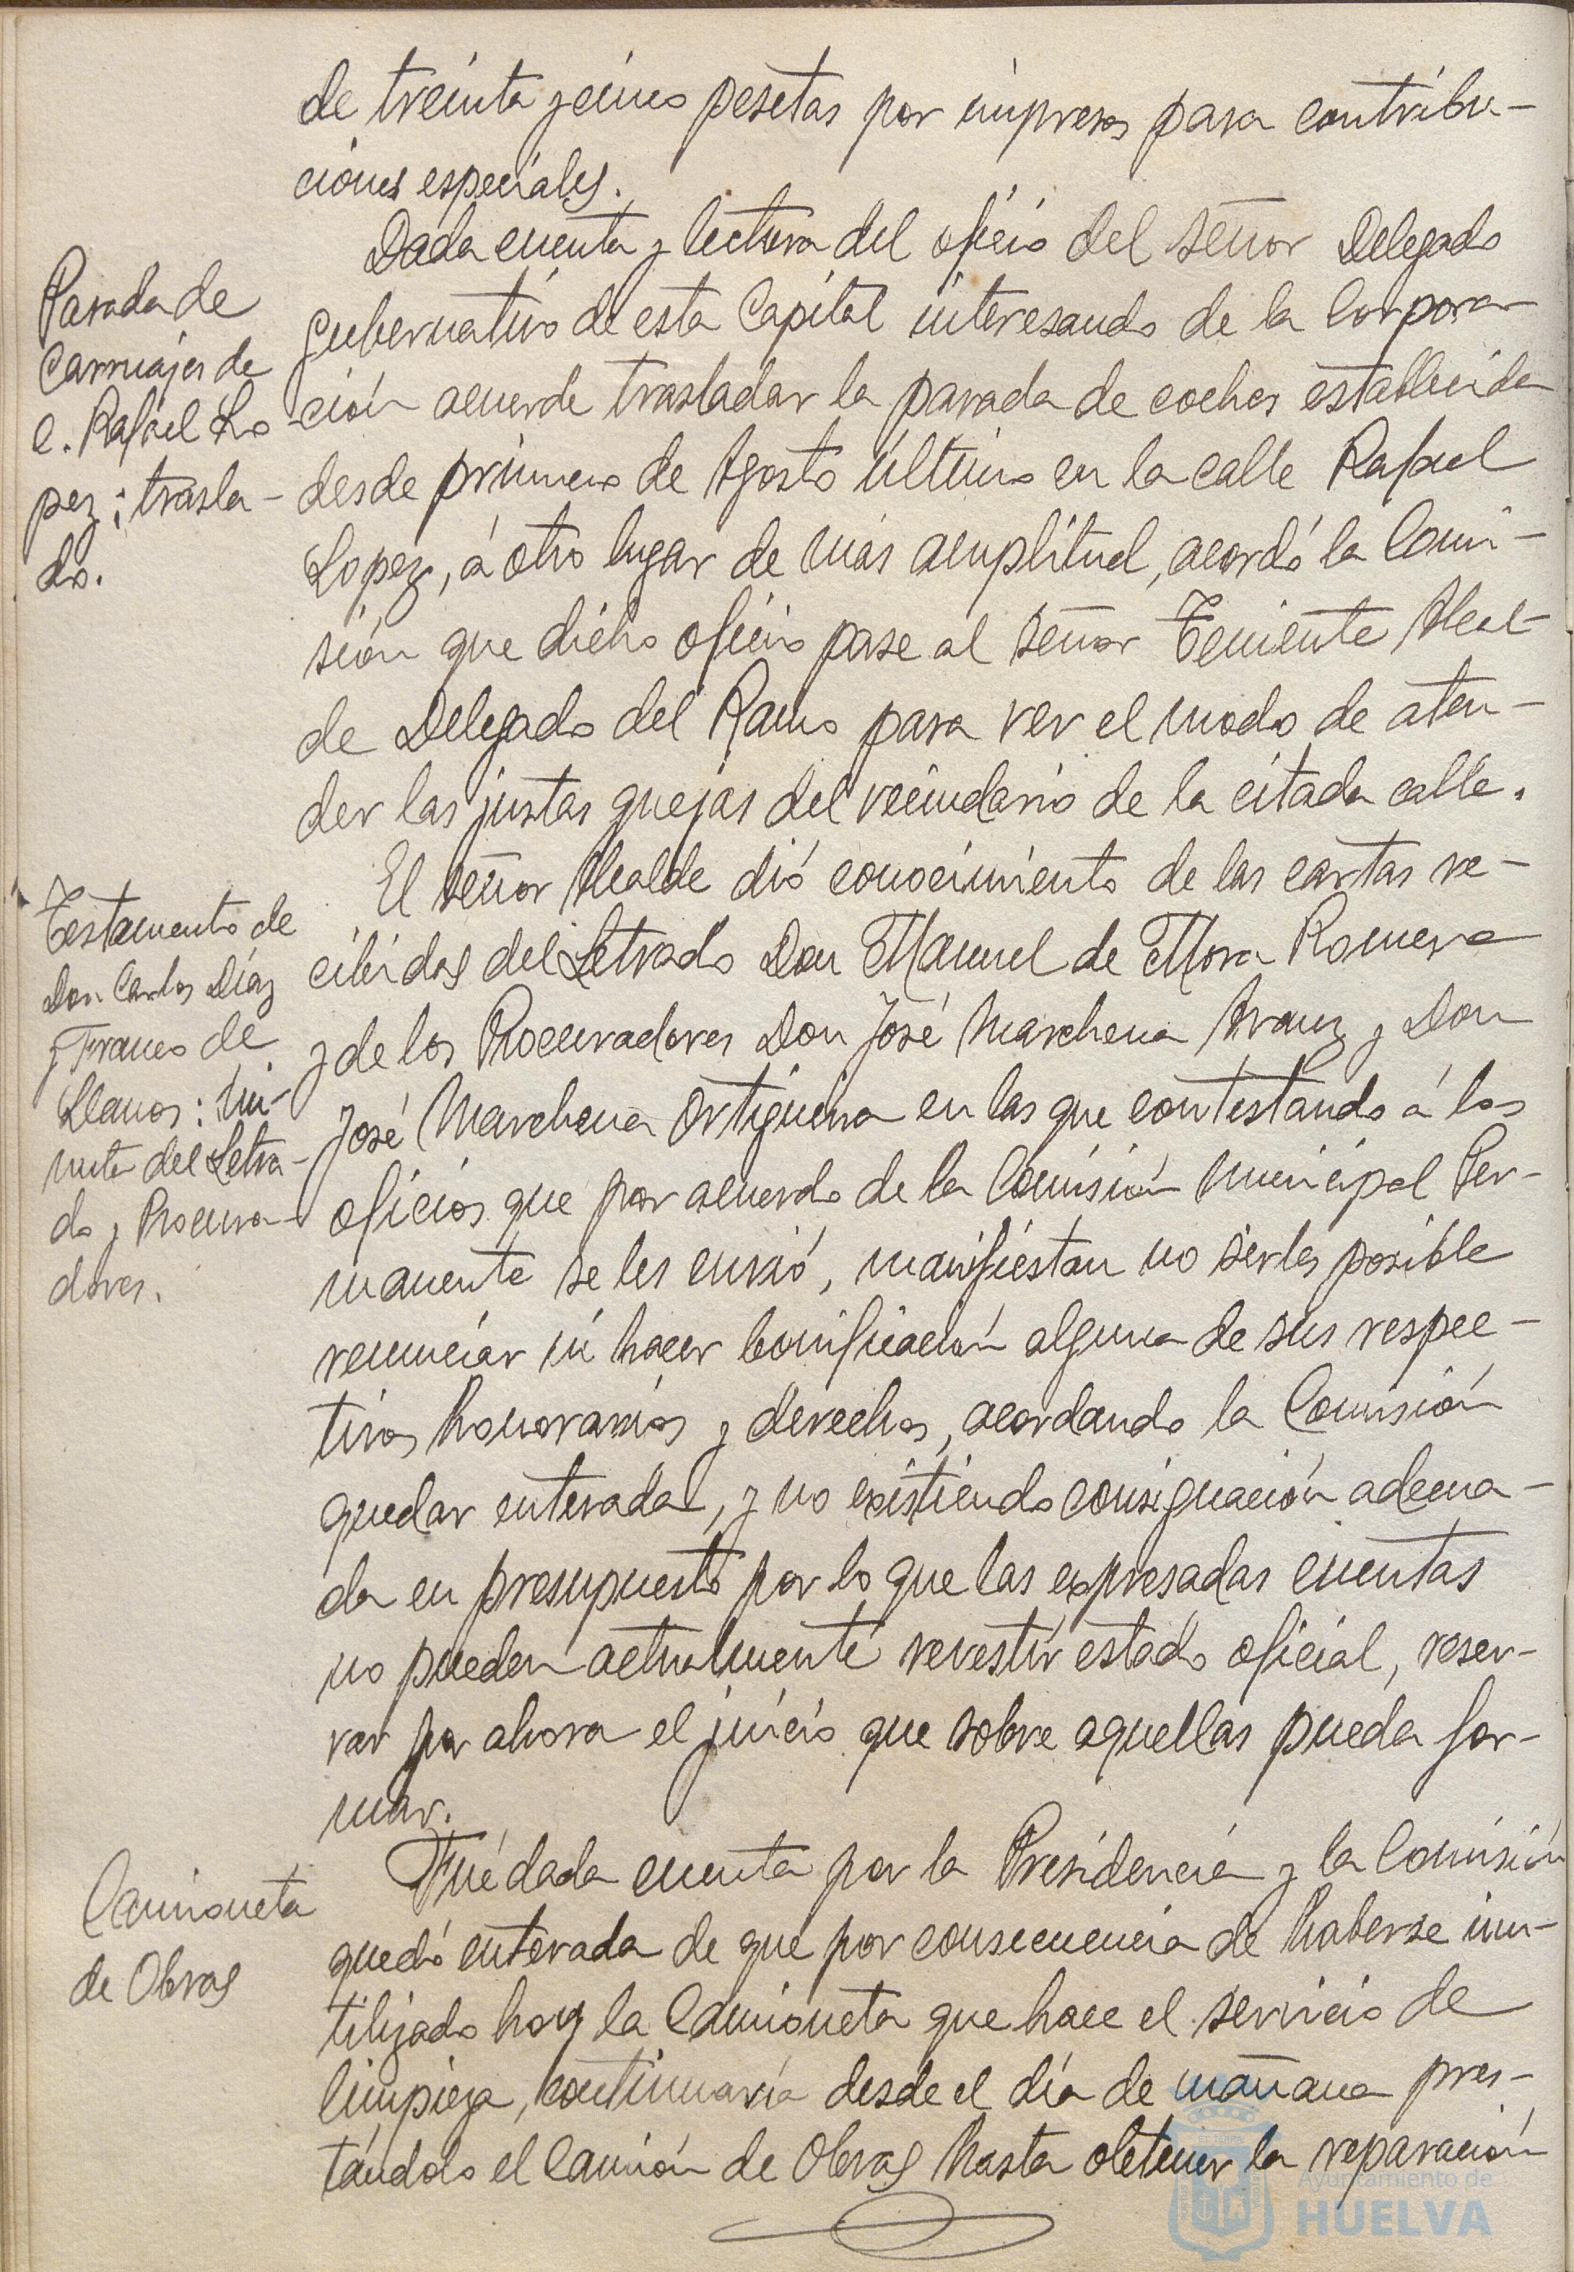 de treinta y cinco pesetas por impresos para contribu-
ciones especiales.
Parada de
Carruajes de
c. Rafael Lo-
pez: trasla-
do.
Dada cuenta y lectura del oficio del señor Delegado
gubernativo de esta Capital interesando de la Corpora-
ción acuerde trasladar la parada de coches establecida
desde primero de Agosto último en la calle Rafael
Lopez, á otro lugar de más amplitud, acordó la Comi-
sión que dicho oficio pase al señor Teniente Alcal-
de Delegado del Ramo para ver el modo de aten-
der las justas quejas del vecindario de la citada calle.
Testamento de
Don Carlos Díaz
y Franco de
Llanos: Mi-
nuta del Letra-
do y Procura-
dores.
El señor Alcalde dió conocimiento de las cartas re-
cibidas del Letrado Don Manuel de Mora Romero
y de los Procuradores Don José Marchena Arauz y Don
José Marchena Ortigueira en las que contestando á los
oficios que por acuerdo de la Comisión Municipal Per-
manente se les envió, manifiestan no serles posible
renunciar ni hacer bonificación alguna de sus respec-
tivos honorarios y derechos, acordando la Comisión
quedar enterada, y no existiendo consignación adecua-
da en presupuesto por lo que las expresadas cuentas
no pueden actualmente revestir estado oficial, reser-
var por ahora el juicio que sobre aquellas pueda for-
mar.
Camioneta
de Obras
Fué dada cuenta por la Presidencia y la Comisión
quedó enterada de que por consecuencia de haberse inu-
tilizado hoy la Camioneta que hace el servicio de
limpieza, continuaría desde el día de mañana pres-
tándolo el Camión de Obras hasta obtener la reparación
Ayuntamiento de
HUELVA